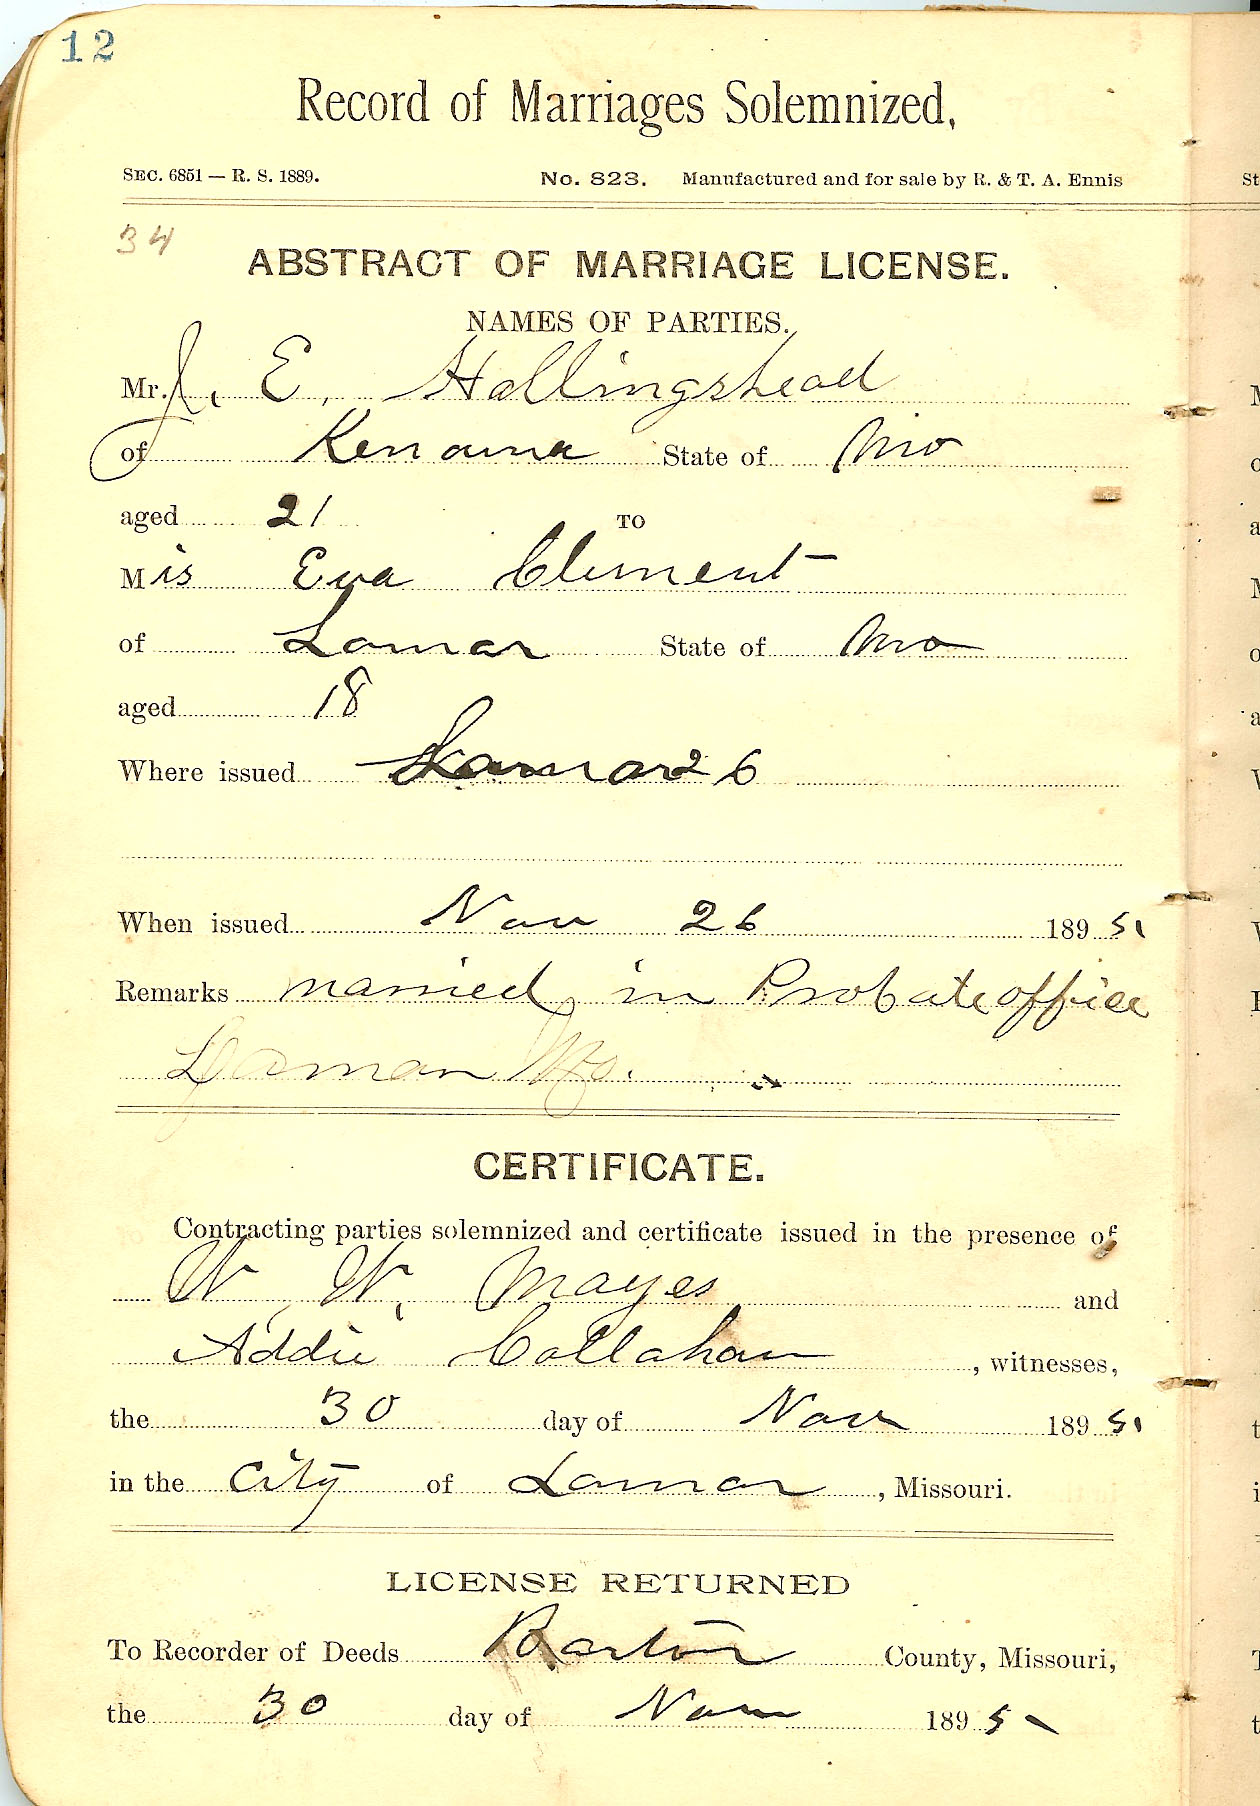 12
Record of Marriages Solemnized,
SEC. 6851 — R. S. 1889. No. 823. Manufactured and for sale by R. & T. A. Ennis
34
ABSTRACT OF MARRIAGE LICENSE.
NAMES OF PARTIES.
Mr. J. E. Hollingshead
of Kenoma State of Mo
aged 21 TO
Mis Eva Clement
of Lamar State of Mo
aged 18
Where issued Lamar 26
When issued Nov 26 1895
Remarks married in Probate office
Lamar Mo.
CERTIFICATE.
Contracting parties solemnized and certificate issued in the presence of
W. W. Mayes and
Addie Callahan, witnesses,
the 30 day of Nov 1895
in the City of Lamar, Missouri.
LICENSE RETURNED
To Recorder of Deeds Barton County, Missouri,
the 30 day of Nov 1895